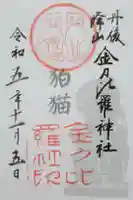 丹後
峰山
金刀比羅神社
狛猫
金刀比
羅神社
令和五年十一月五日